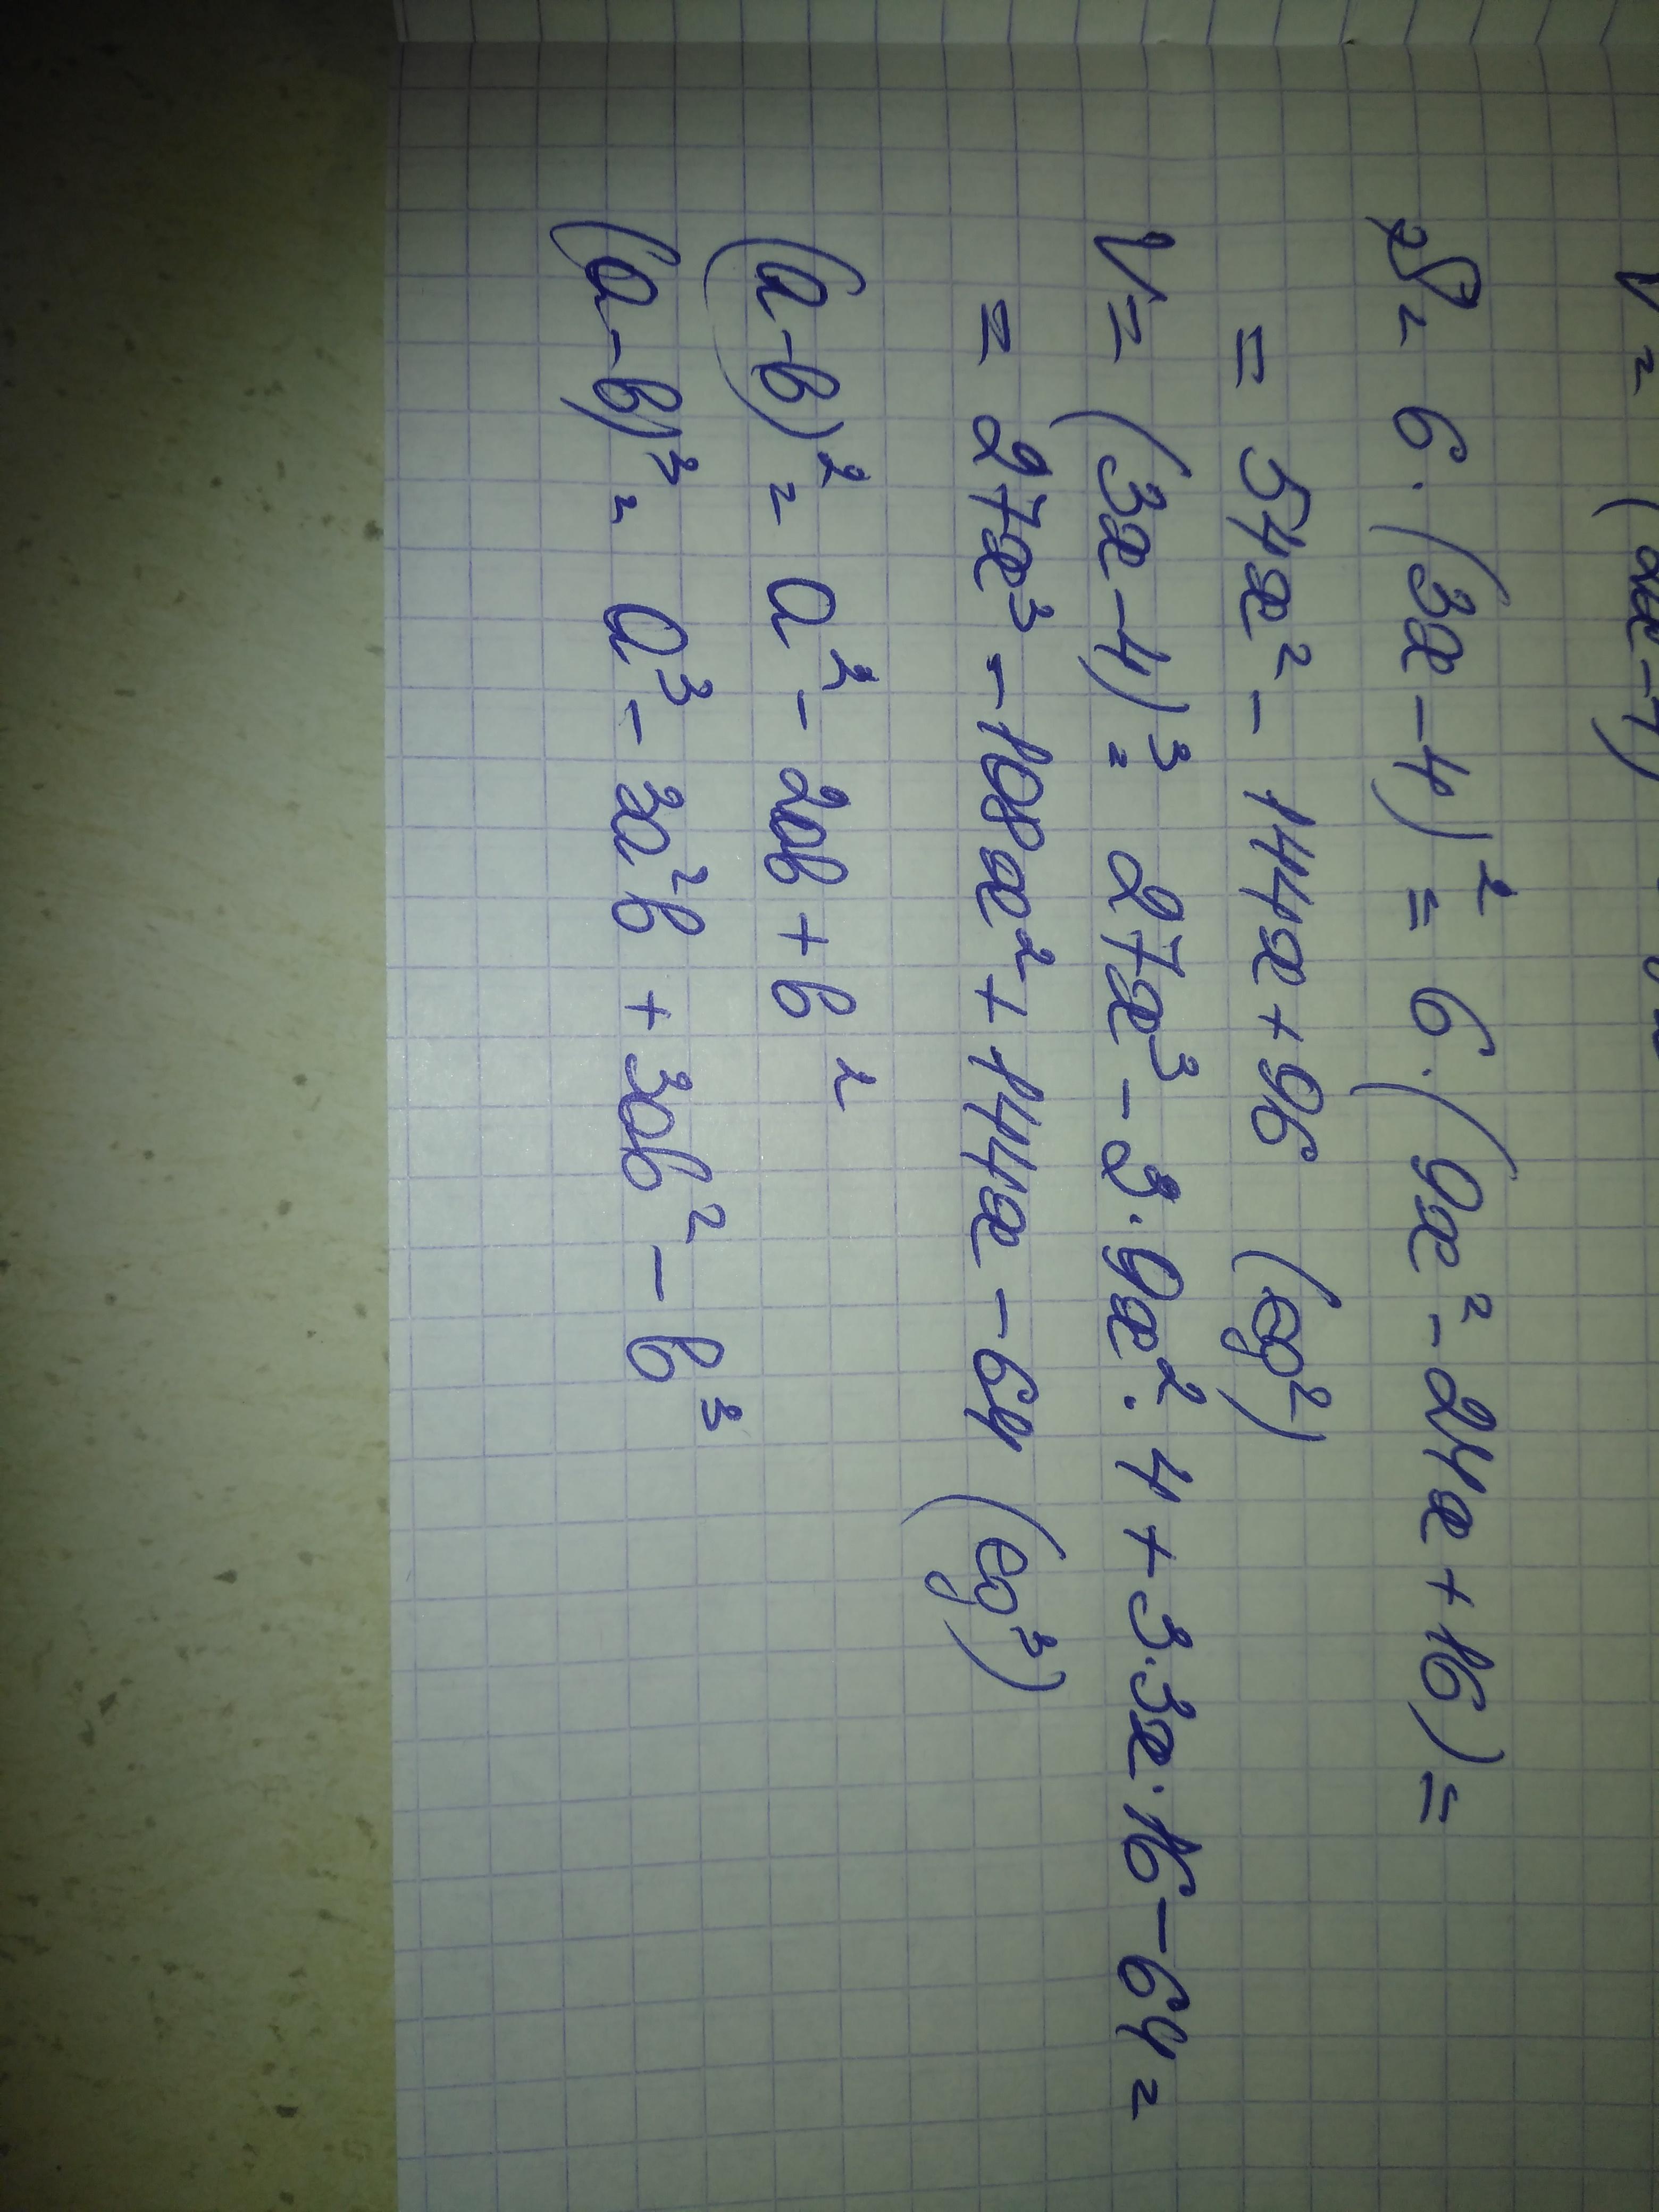 V = (3x-4)
S = 6·(3x-4)² = 6·(9x²-24x+16) =
= 54x² - 144x + 96 (ед²)
V = (3x-4)³ = 27x³ - 3·9x²·4 + 3·3x·16 - 64 =
= 27x³ - 108x² + 144x - 64 (ед³)
(a-b)² = a² - 2ab + b²
(a-b)³ = a³ - 3a²b + 3ab² - b³